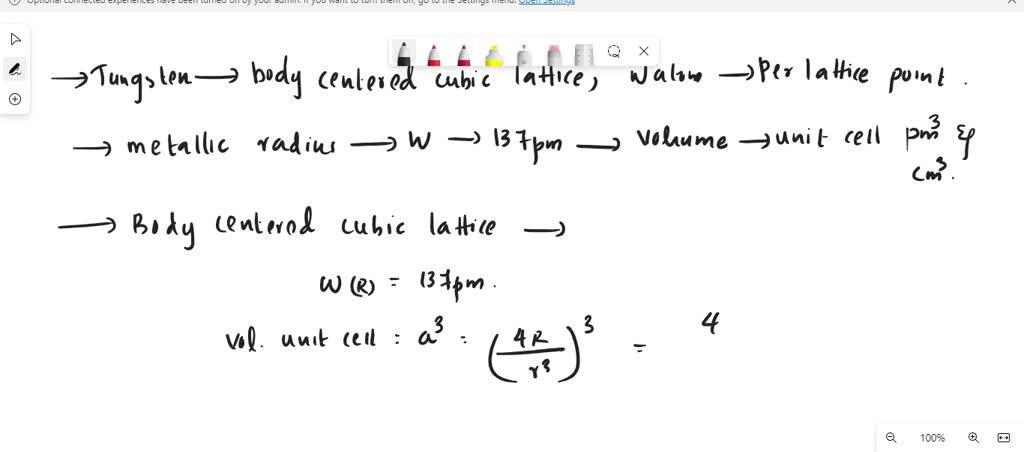 Optional connected experiences have been turned off by your admin. If you want to turn them on, go to the Settings menu. Open Settings
→ Tungsten → body centered cubic lattice, W atom → Per lattice point.
→ metallic radius → W → 137pm → Volume → unit cell pm³ &
cm³.
→ Body centered cubic lattice →
W(R) = 137pm.
Vol. unit cell : a³ = (4R/r3)³ = 4
100%